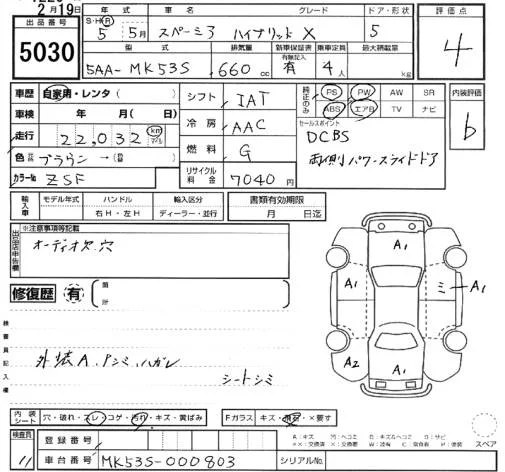 2月19日
出品番号 5030
年式 S・H・R 5年 5月 車名 スペーシア ハイブリッド X グレード ドア・形状 5
型式 5AA-MK53S 排気量 660cc 新車保証書 有無記入 有 乗車定員 4人 最大積載量 kg
評価点 4
車歴 自家用・レンタ( )
車検 年 月( )
走行 22,032 km
色 ブラウン →( )
カラーNo ZSF
シフト IAT
冷房 AAC
燃料 G
リサイクル料金 7040円
純正のみ PS PW AW SR
ABS エアB TV ナビ
セールスポイント
DCBS
両側パワースライドドア
内装評価 b
輸入車 モデル年式 ハンドル 右H・左H 輸入区分 ディーラー・並行
書類有効期限 月 日迄
出品店申告欄 ※注意事項等記載
オーディオ欠、穴
修復歴 有 箇所
検査員記入欄
外装A、シミ、ハガレ
シートシミ
A1
A1 ミ A1
A2 A1
A1
内装シート 穴・破れ・スレ・コゲ・汚れ・キズ・黄ばみ
Fガラス キズ・飛石・×要す
スペア
検査員 11
登録番号
車台番号 MK53S-000803 シリアルNo.